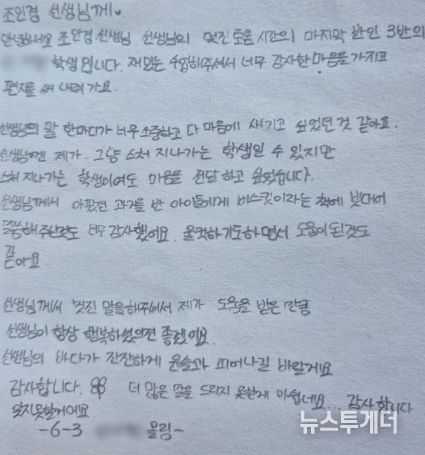 조인경 선생님께♥
안녕하세요 조인경 선생님 선생님의 멋진 도움 시간의 마지막 반인 3반의
학생입니다. 재밌는 수업해주셔서 너무 감사한 마음을 가지고
편지를 써 내려가요.
선생님의 말 한마디가 너무 소중하고 다 마음에 새기고 싶었던 것 같아요.
선생님껜 제가 그냥 스쳐 지나가는 학생일 수 있지만
스쳐 지나가는 학생이여도 마음을 전달하고 싶었습니다.
선생님께서 아팠던 과거를 반 아이들에게 비스킷이라는 책에 빗대어
말씀해주신것도 너무 감사했어요. 울컥하기도하면서 도움이 된것도
같아요
선생님께서 멋진 말을해주셔서 제가 도움을 받은 만큼
선생님이 항상 행복하셨으면 좋겠어요.
선생님의 바다가 잔잔하게 윤슬과 피어나길 바랄게요
감사합니다. 더 많은 말을 드리지 못한게 아쉽네요. 감사합니다
잊지못할거에요
-6-3 올림-
뉴스투게더